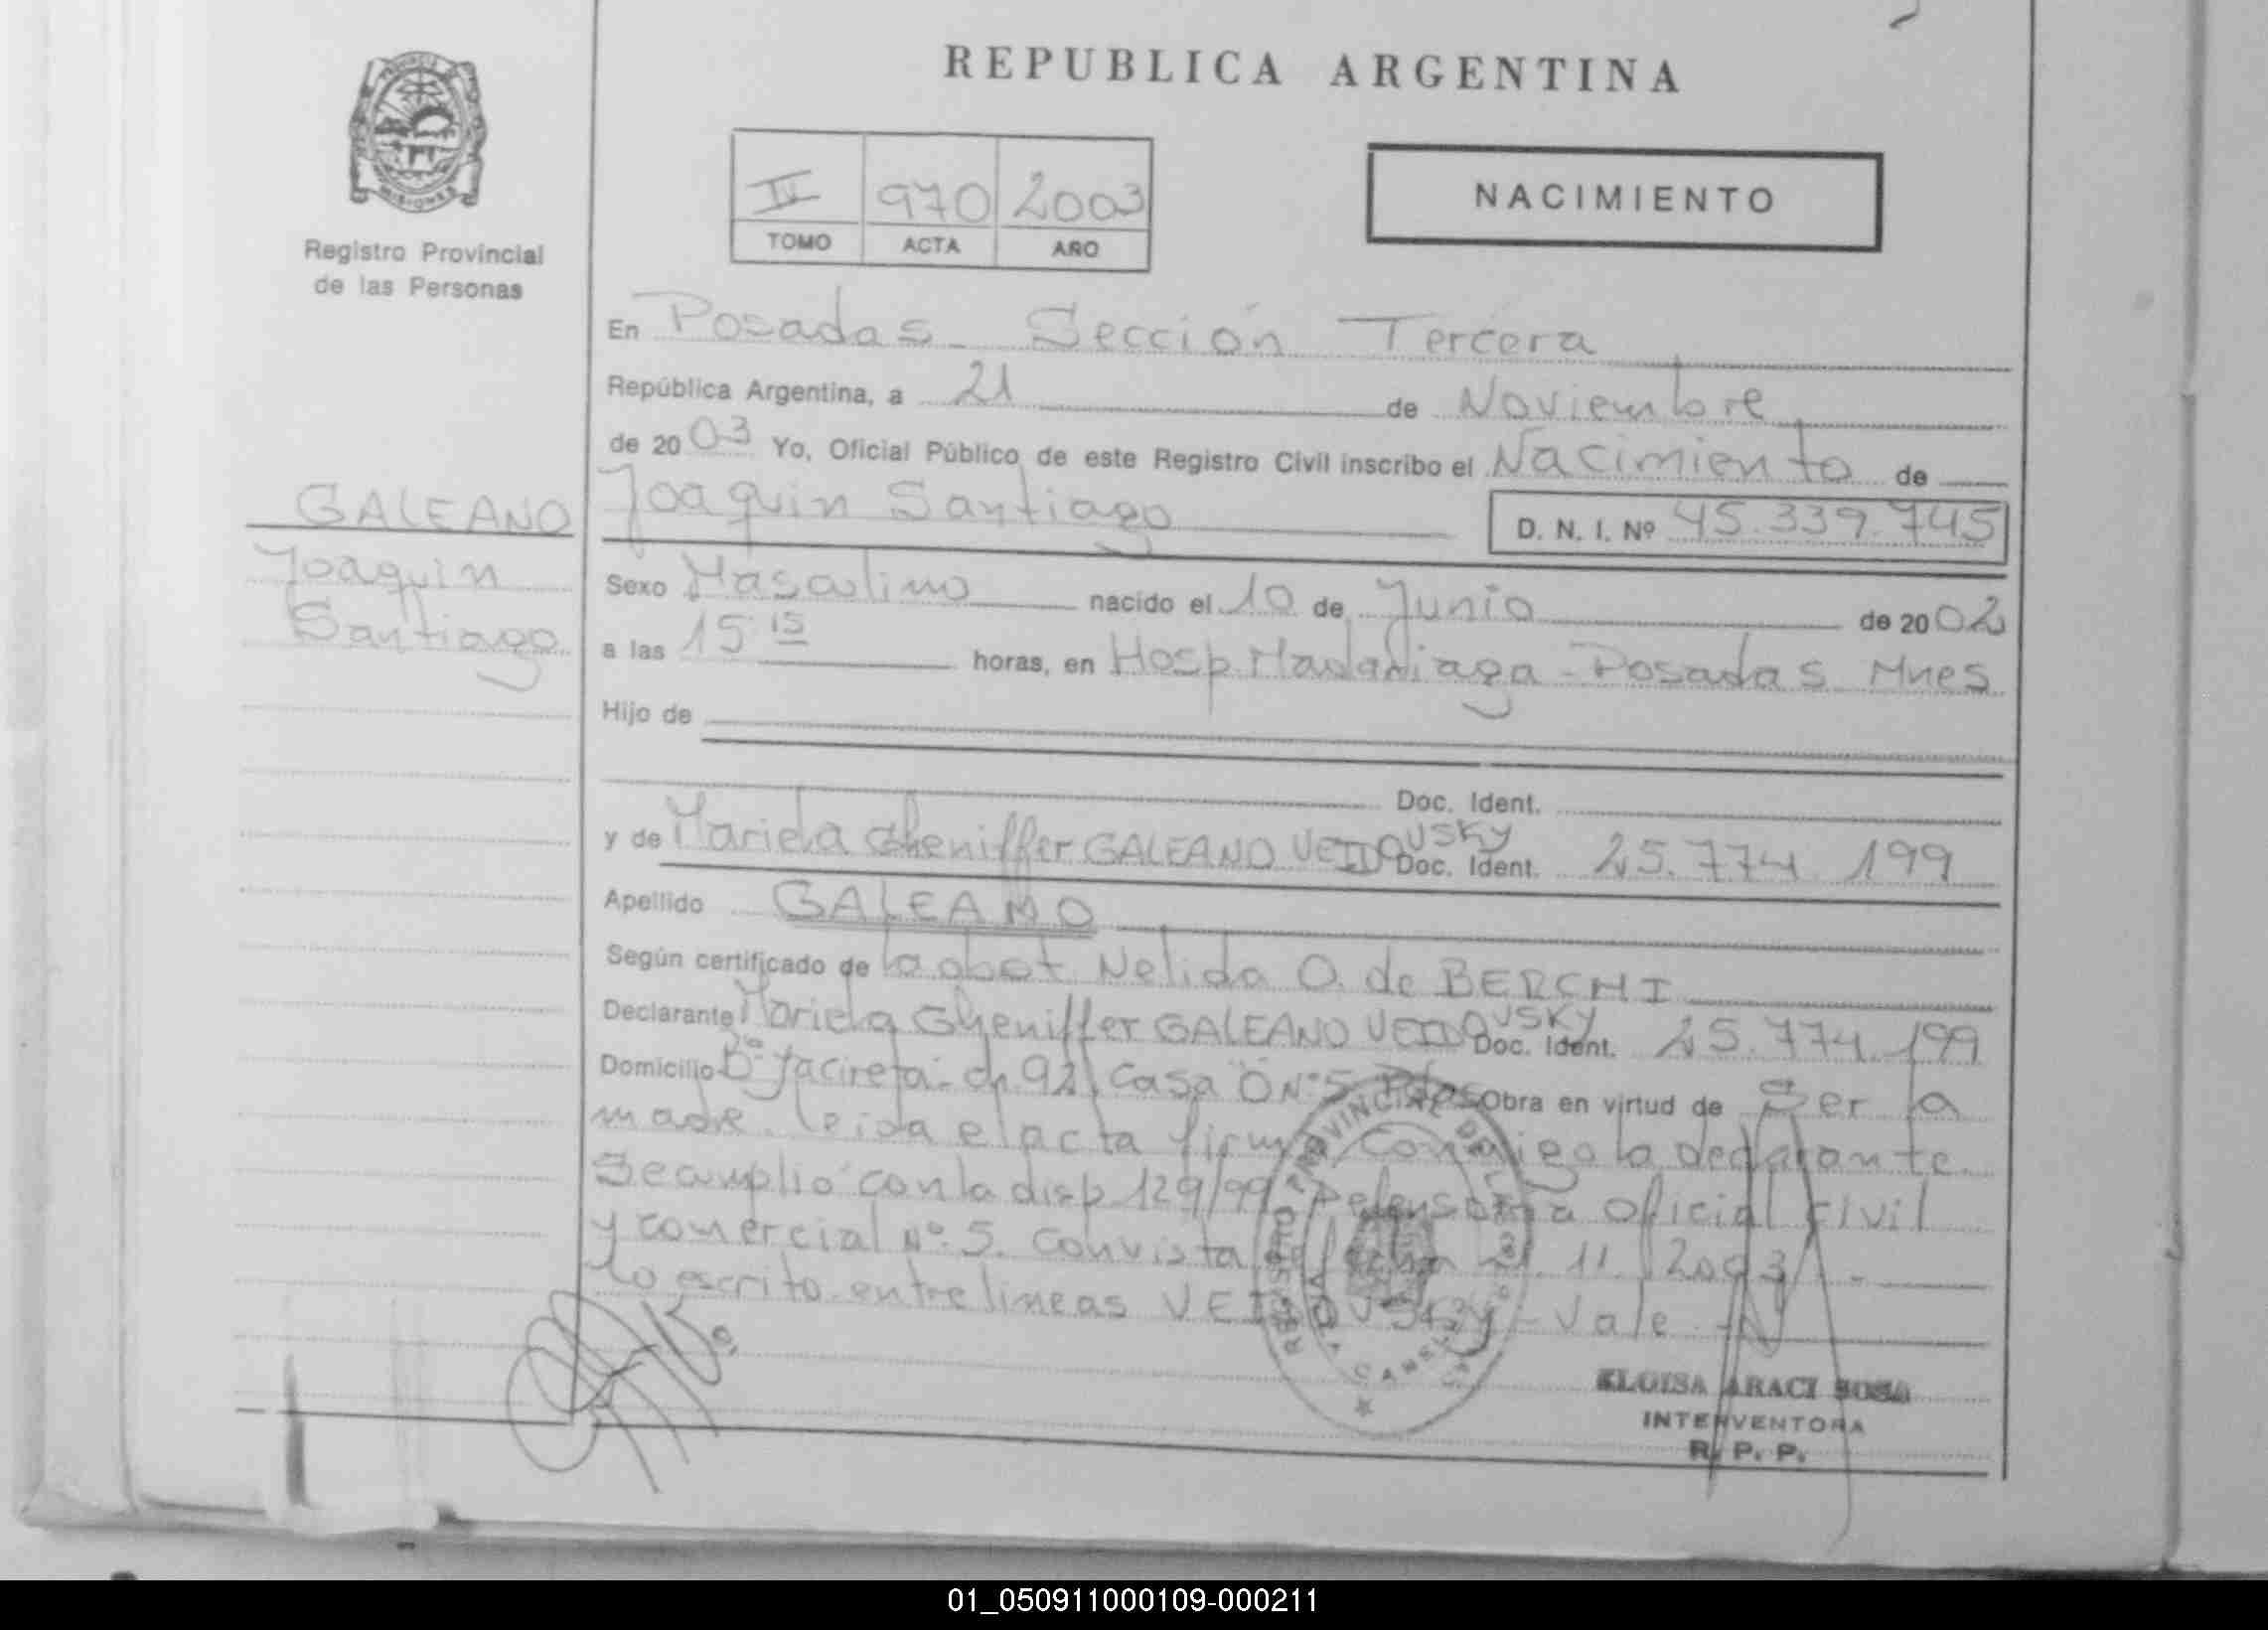 REPUBLICA ARGENTINA
PROVINCIA DE
MISIONES
Registro Provincial
de las Personas
IV 970 2003
TOMO ACTA AÑO
NACIMIENTO
En Posadas - Sección Tercera
República Argentina, a 21 de Noviembre
de 2003 Yo, Oficial Público de este Registro Civil inscribo el Nacimiento de
GALEANO
Joaquin
Santiago
Joaquin Santiago D. N. I. Nº 45.339.745
Sexo Masculino nacido el 10 de Junio de 2002
a las 15 15 horas, en Hosp. Madariaga - Posadas Mnes
Hijo de
Doc. Ident.
y de Mariela Gheniffer GALEANO VEIDOVSKY Doc. Ident. 25.774.199
Apellido GALEANO
Según certificado de la obst Nelida O. de BERCHI
Declarante Mariela Gheniffer GALEANO VEIDOVSKY Doc. Ident. 25.774.199
Domicilio Bº Yacireta - ch 92, Casa Nº 5 Pdas Obra en virtud de Ser la
madre. Leida el acta firma conmigo la declarante.
Se cumplio con la disp 129/99 Defensoria Oficial Civil
y comercial Nº 5. Con vista de fecha 21.11.2003 -
Lo escrito entre lineas VEIDOVSKY - Vale -
ELOISA ARACI SOSA
INTERVENTORA
R. P. P.
01_050911000109-000211